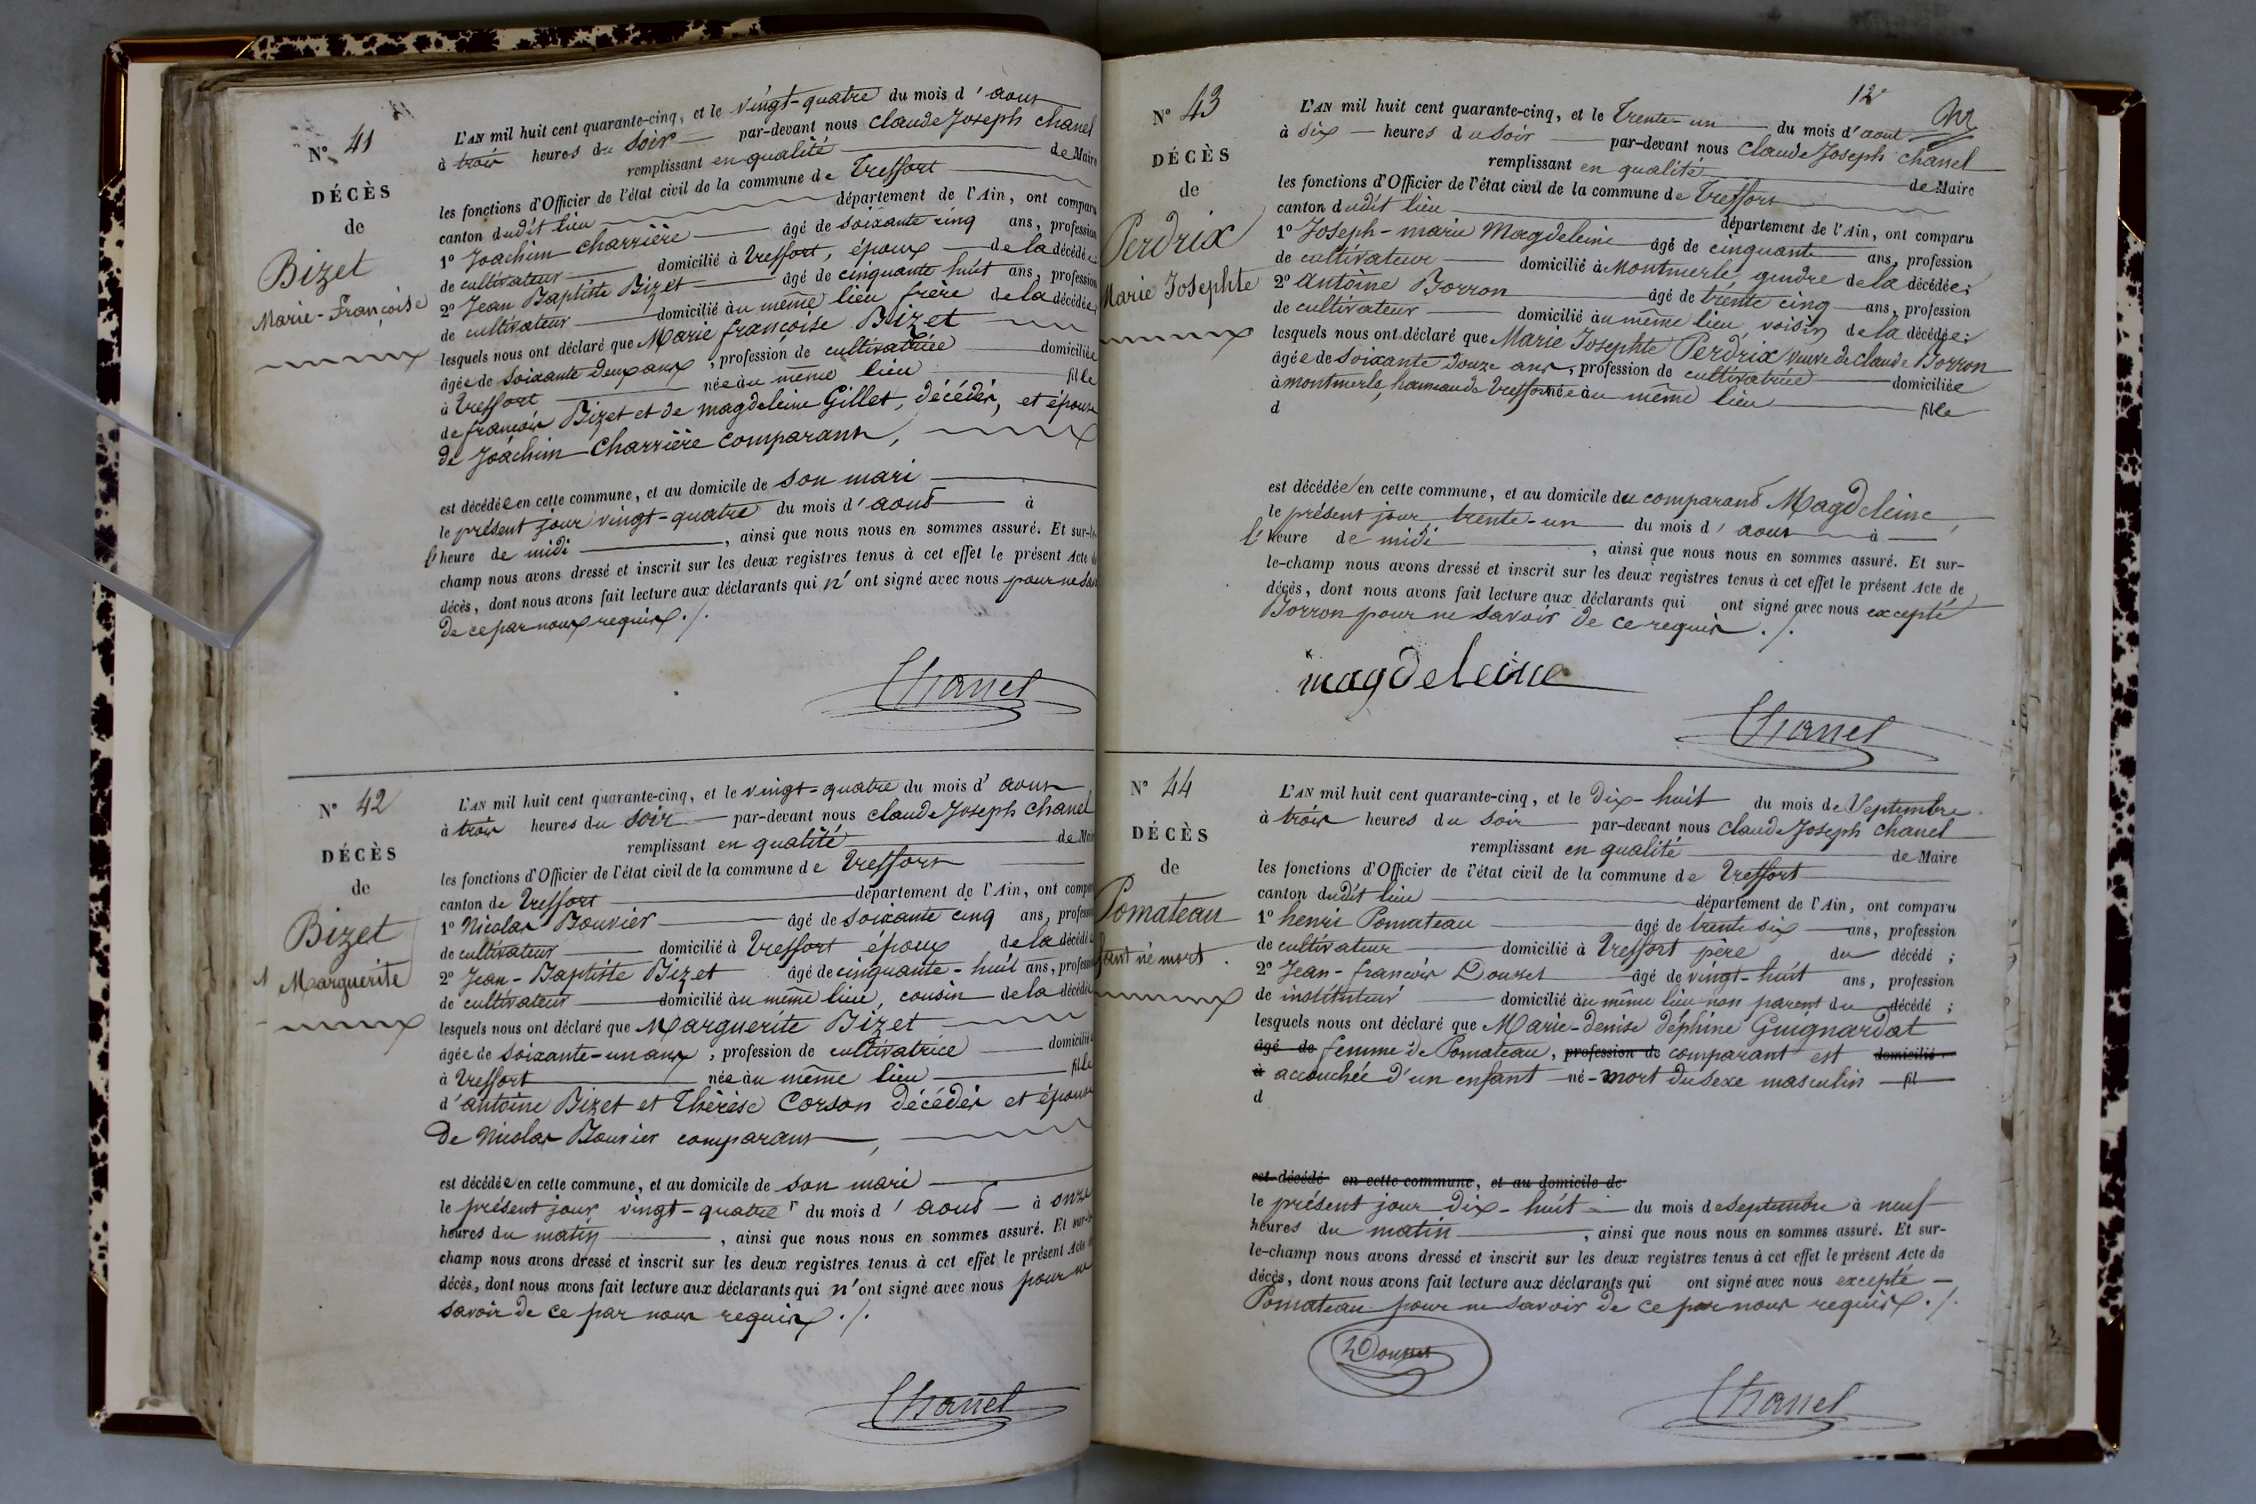 N° 41
DÉCÈS
de
Bizet
Marie-Françoise
L'AN mil huit cent quarante-cinq, et le vingt-quatre du mois d'aout
à trois heures du soir par-devant nous Claude Joseph Chanel
remplissant en qualité de Maire
les fonctions d'Officier de l'état civil de la commune de Treffort
canton dudit lieu département de l'Ain, ont comparu
1° Joachim Charrière âgé de soixante cinq ans, profession
de cultivateur domicilié à Treffort, époux de la décédée
2° Jean Baptiste Bizet âgé de cinquante huit ans, profession
de cultivateur domicilié au même lieu frère de la décédée
lesquels nous ont déclaré que Marie françoise Bizet
âgée de soixante deux ans, profession de cultivatrice domiciliée
à Treffort née au même lieu fille
de françois Bizet et de magdeleine Gillet, décédés, et épouse
de Joachim Charrière comparant,
est décédée en cette commune, et au domicile de son mari
le présent jour vingt-quatre du mois d'aout à
l'heure de midi, ainsi que nous nous en sommes assuré. Et sur-le-
champ nous avons dressé et inscrit sur les deux registres tenus à cet effet le présent Acte de
décès, dont nous avons fait lecture aux déclarants qui n'ont signé avec nous pour ne savoir
de ce par nous requis ./.
Chanel
N° 42
DÉCÈS
de
Bizet
Marguerite
L'AN mil huit cent quarante-cinq, et le vingt-quatre du mois d'aout
à trois heures du soir par-devant nous Claude Joseph Chanel
remplissant en qualité de Maire
les fonctions d'Officier de l'état civil de la commune de Treffort
canton de Treffort département de l'Ain, ont comparu
1° Nicolas Bouvier âgé de soixante cinq ans, profession
de cultivateur domicilié à Treffort époux de la décédée
2° Jean-Baptiste Bizet âgé de cinquante-huit ans, profession
de cultivateur domicilié au même lieu, cousin de la décédée
lesquels nous ont déclaré que Marguerite Bizet
âgée de soixante-un ans, profession de cultivatrice domiciliée
à Treffort née au même lieu fille
d'antoine Bizet et Thérèse Corson décédés et épouse
de Nicolas Bouvier comparant,
est décédée en cette commune, et au domicile de son mari
le présent jour vingt-quatre du mois d'aout à onze
heures du matin, ainsi que nous nous en sommes assuré. Et sur-le-
champ nous avons dressé et inscrit sur les deux registres tenus à cet effet le présent Acte de
décès, dont nous avons fait lecture aux déclarants qui n'ont signé avec nous pour ne
savoir de ce par nous requis ./.
Chanel
12
N° 43
DÉCÈS
de
Perdrix
Marie Josephte
L'AN mil huit cent quarante-cinq, et le trente-un du mois d'aout
à six heures du soir par-devant nous Claude Joseph Chanel
remplissant en qualité de Maire
les fonctions d'Officier de l'état civil de la commune de Treffort
canton dudit lieu département de l'Ain, ont comparu
1° Joseph-marie Magdeleine âgé de cinquante ans, profession
de cultivateur domicilié à Montmerle, gendre de la décédée;
2° antoine Borron âgé de trente cinq ans, profession
de cultivateur domicilié au même lieu voisin de la décédée;
lesquels nous ont déclaré que Marie Josephte Perdrix veuve de Claude Borron
âgée de soixante douze ans, profession de cultivatrice domiciliée
à montmerle, hameau de Treffort née au même lieu fille
d
est décédée en cette commune, et au domicile du comparant Magdeleine,
le présent jour trente-un du mois d'aout à
l'heure de midi, ainsi que nous nous en sommes assuré. Et sur-
le-champ nous avons dressé et inscrit sur les deux registres tenus à cet effet le présent Acte de
décès, dont nous avons fait lecture aux déclarants qui ont signé avec nous excepté
Borron pour ne savoir de ce requis ./.
magdeleine
Chanel
N° 44
DÉCÈS
de
Pomateau
fant né mort.
L'AN mil huit cent quarante-cinq, et le dix-huit du mois de Septembre
à trois heures du soir par-devant nous Claude Joseph Chanel
remplissant en qualité de Maire
les fonctions d'Officier de l'état civil de la commune de Treffort
canton dudit lieu département de l'Ain, ont comparu
1° henri Pomateau âgé de trente six ans, profession
de cultivateur domicilié à Treffort père du décédé;
2° Jean-françois Douzet âgé de vingt-huit ans, profession
de instituteur domicilié au même lieu non parent du décédé;
lesquels nous ont déclaré que Marie-denise delphine Guignardat
âgé de femme de Pomateau, profession de comparant est domicilié
à accouchée d'un enfant né-mort du sexe masculin fil
d
est décédé en cette commune, et au domicile de
le présent jour dix-huit du mois de septembre à neuf
heures du matin, ainsi que nous nous en sommes assuré. Et sur-
le-champ nous avons dressé et inscrit sur les deux registres tenus à cet effet le présent Acte de
décès, dont nous avons fait lecture aux déclarants qui ont signé avec nous excepté
Pomateau pour ne savoir de ce par nous requis ./.
Douzet
Chanel